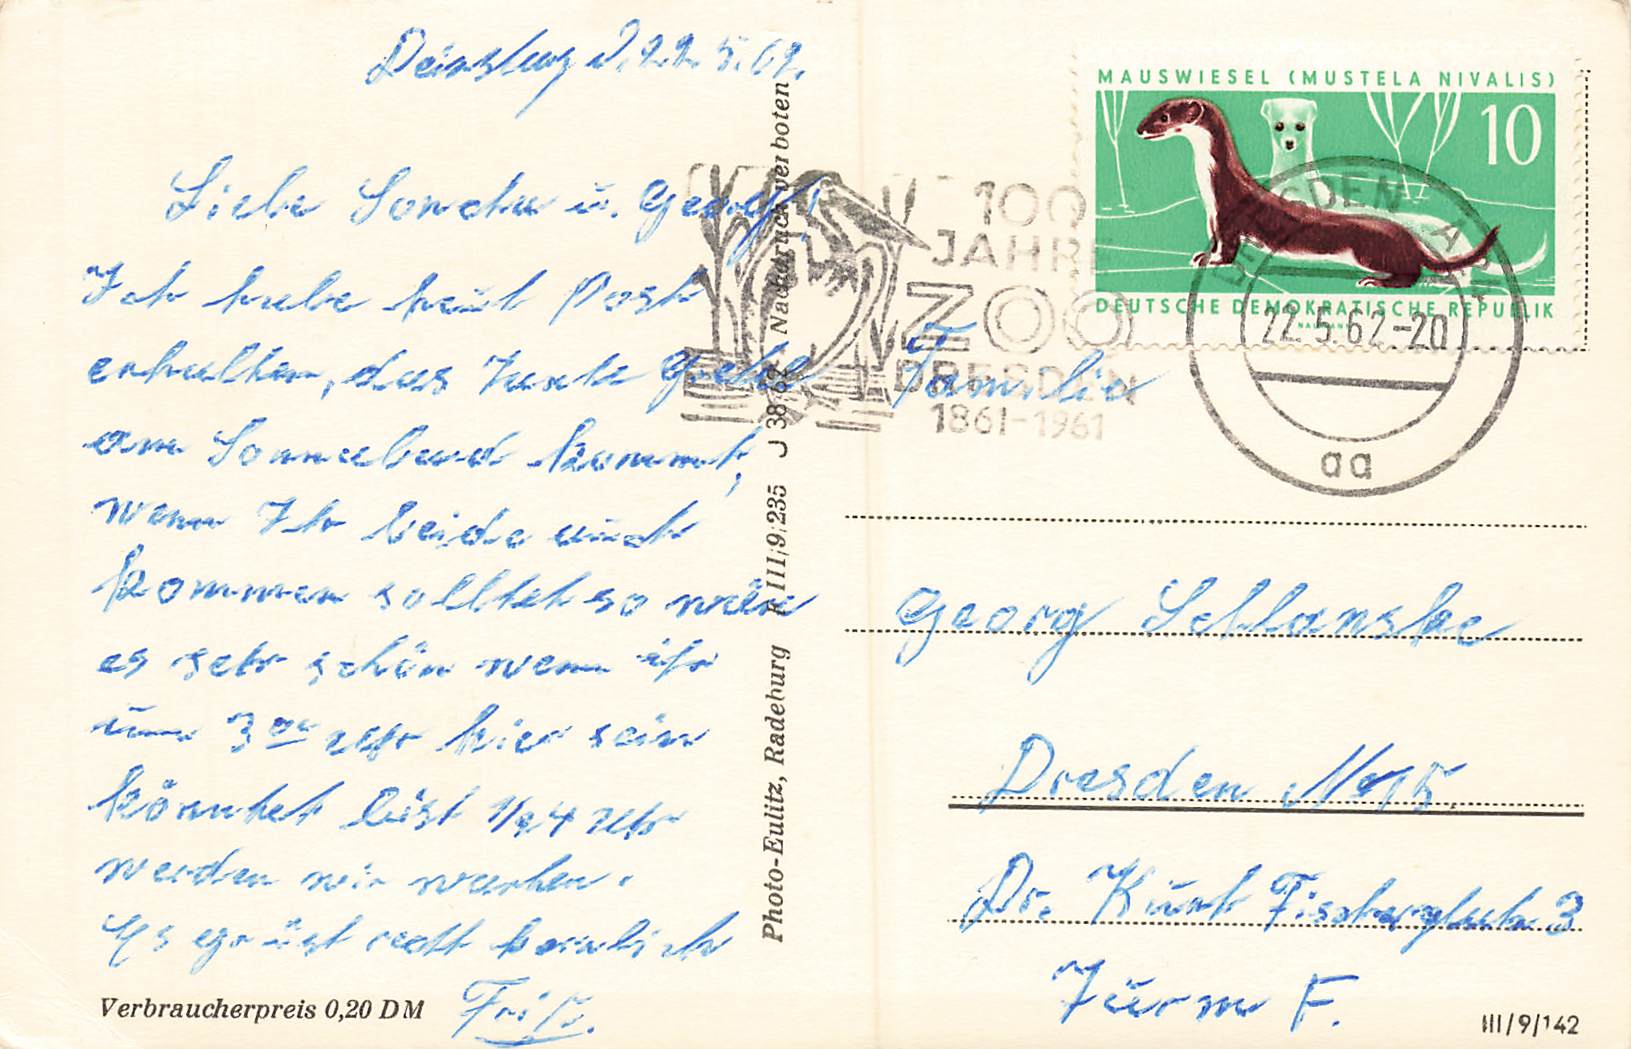 Deinstag d. 22. 5. 62.
Liebe u. Georg!
Ich habe heut Post
erhalten, das Tante
am Sonnabend kommt,
wenn Ihr beide auch
kommen solltet so wäre
es sehr schön wenn ihr
um 3 00 Uhr hier sein
könntet bist 1/2 4 Uhr
werden wir warten.
Es grüst recht herzlich
Fritz.
Verbraucherpreis 0,20 DM
Photo-Eulitz, Radeburg R III/9/235 J 38/62 Nachdruck verboten
100
JAHRE
ZOO
DRESDEN
1861-1961
MAUSWIESEL (MUSTELA NIVALIS)
10
DEUTSCHE DEMOKRATISCHE REPUBLIK
DRESDEN
22.5.62.-20
aa
Familie
Georg Schlanske
Dresden N 15.
Dr. Kurt 3
Turm F.
III/9/142